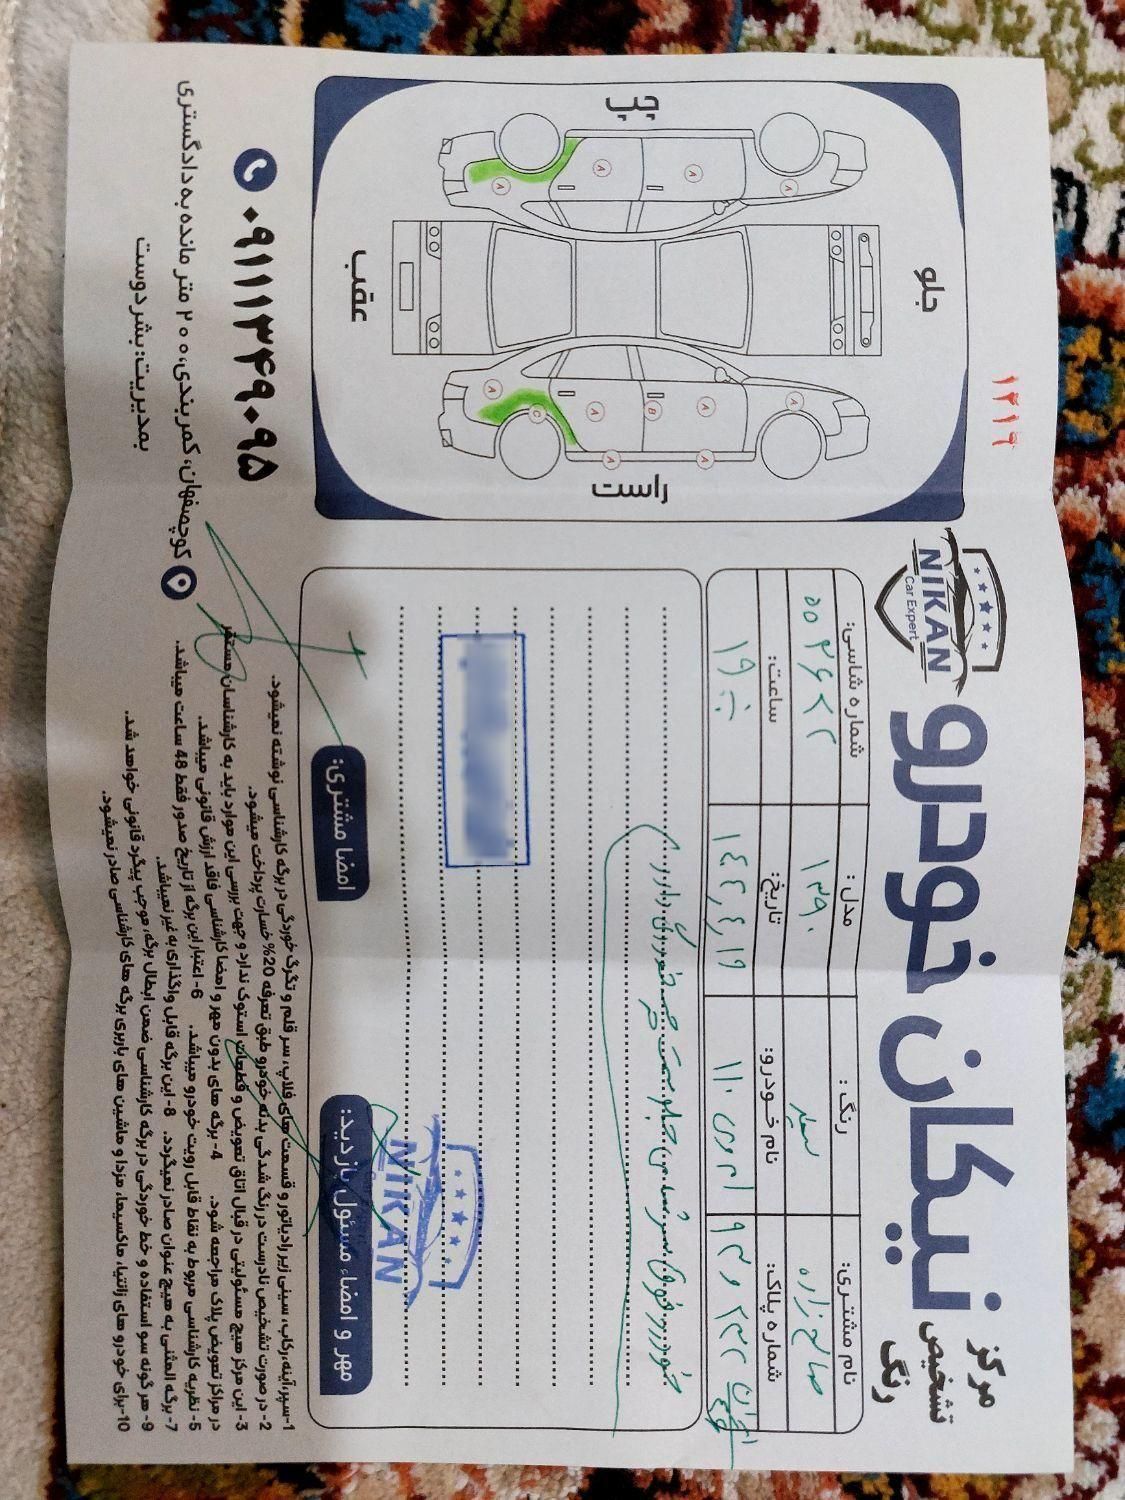 مرکز
تشخیص
رنگ
نیکان خودرو
NIKAN
Car Expert
۱۲۱۹
نام مشتری:
صالح زاده
رنگ:
سفید
مدل:
۱۳۹۰
شماره شاسی:
شماره پلاک:
نام خودرو:
ام وی ام ۱۱۰
تاریخ:
ساعت:
۱۹:۰۰
خودرو فوق سر شاسی جلو سمت چپ خوردگی دارد.
NIKAN
مهر و امضاء مسئول بازدید:
امضا مشتری:
1-سپر،آینه،رکاب، سینی زیر رادیاتور و قسمت های فلاپ، سر قلم و تگرگ خوردگی در برگه کارشناسی نوشته نمیشود.
2- در صورت تشخیص نادرست در رنگ شدگی بدنه خودرو طبق تعرفه 20% خسارت پرداخت میشود.
3- این مرکز هیچ مسئولیتی در قبال اتاق تعویض و قطعات استوک ندارد و جهت بررسی این موارد باید به کارشناسان مستقر
در مراکز تعویض پلاک مراجعه شود. 4- برگه های بدون مهر و امضا کارشناسی فاقد ارزش قانونی میباشد.
5- نظریه کارشناسی مربوط به نقاط قابل رویت خودرو میباشد. 6- اعتبار این برگه از تاریخ صدور فقط 48 ساعت میباشد.
7- برگه المثنی به هیچ عنوان صادر نمیگردد. 8- این برگه قابل واگذاری به غیر نمیباشد.
9- هر گونه سو استفاده و خط خوردگی در برگه کارشناسی ضمن ابطال برگه، موجب پیگرد قانونی خواهد شد.
10-برای خودرو های زانتیا، ماکسیما، مزدا و ماشین های باربری برگه های کارشناسی صادر نمیشود.
چپ
جلو
عقب
راست
A A A A
A C A B A A
A A
۰۹۱۱۱۳۴۹۰۹۵
کوچصفهان، کمربندی، ۲۰۰ متر مانده به دادگستری
بمدیریت: بشردوست